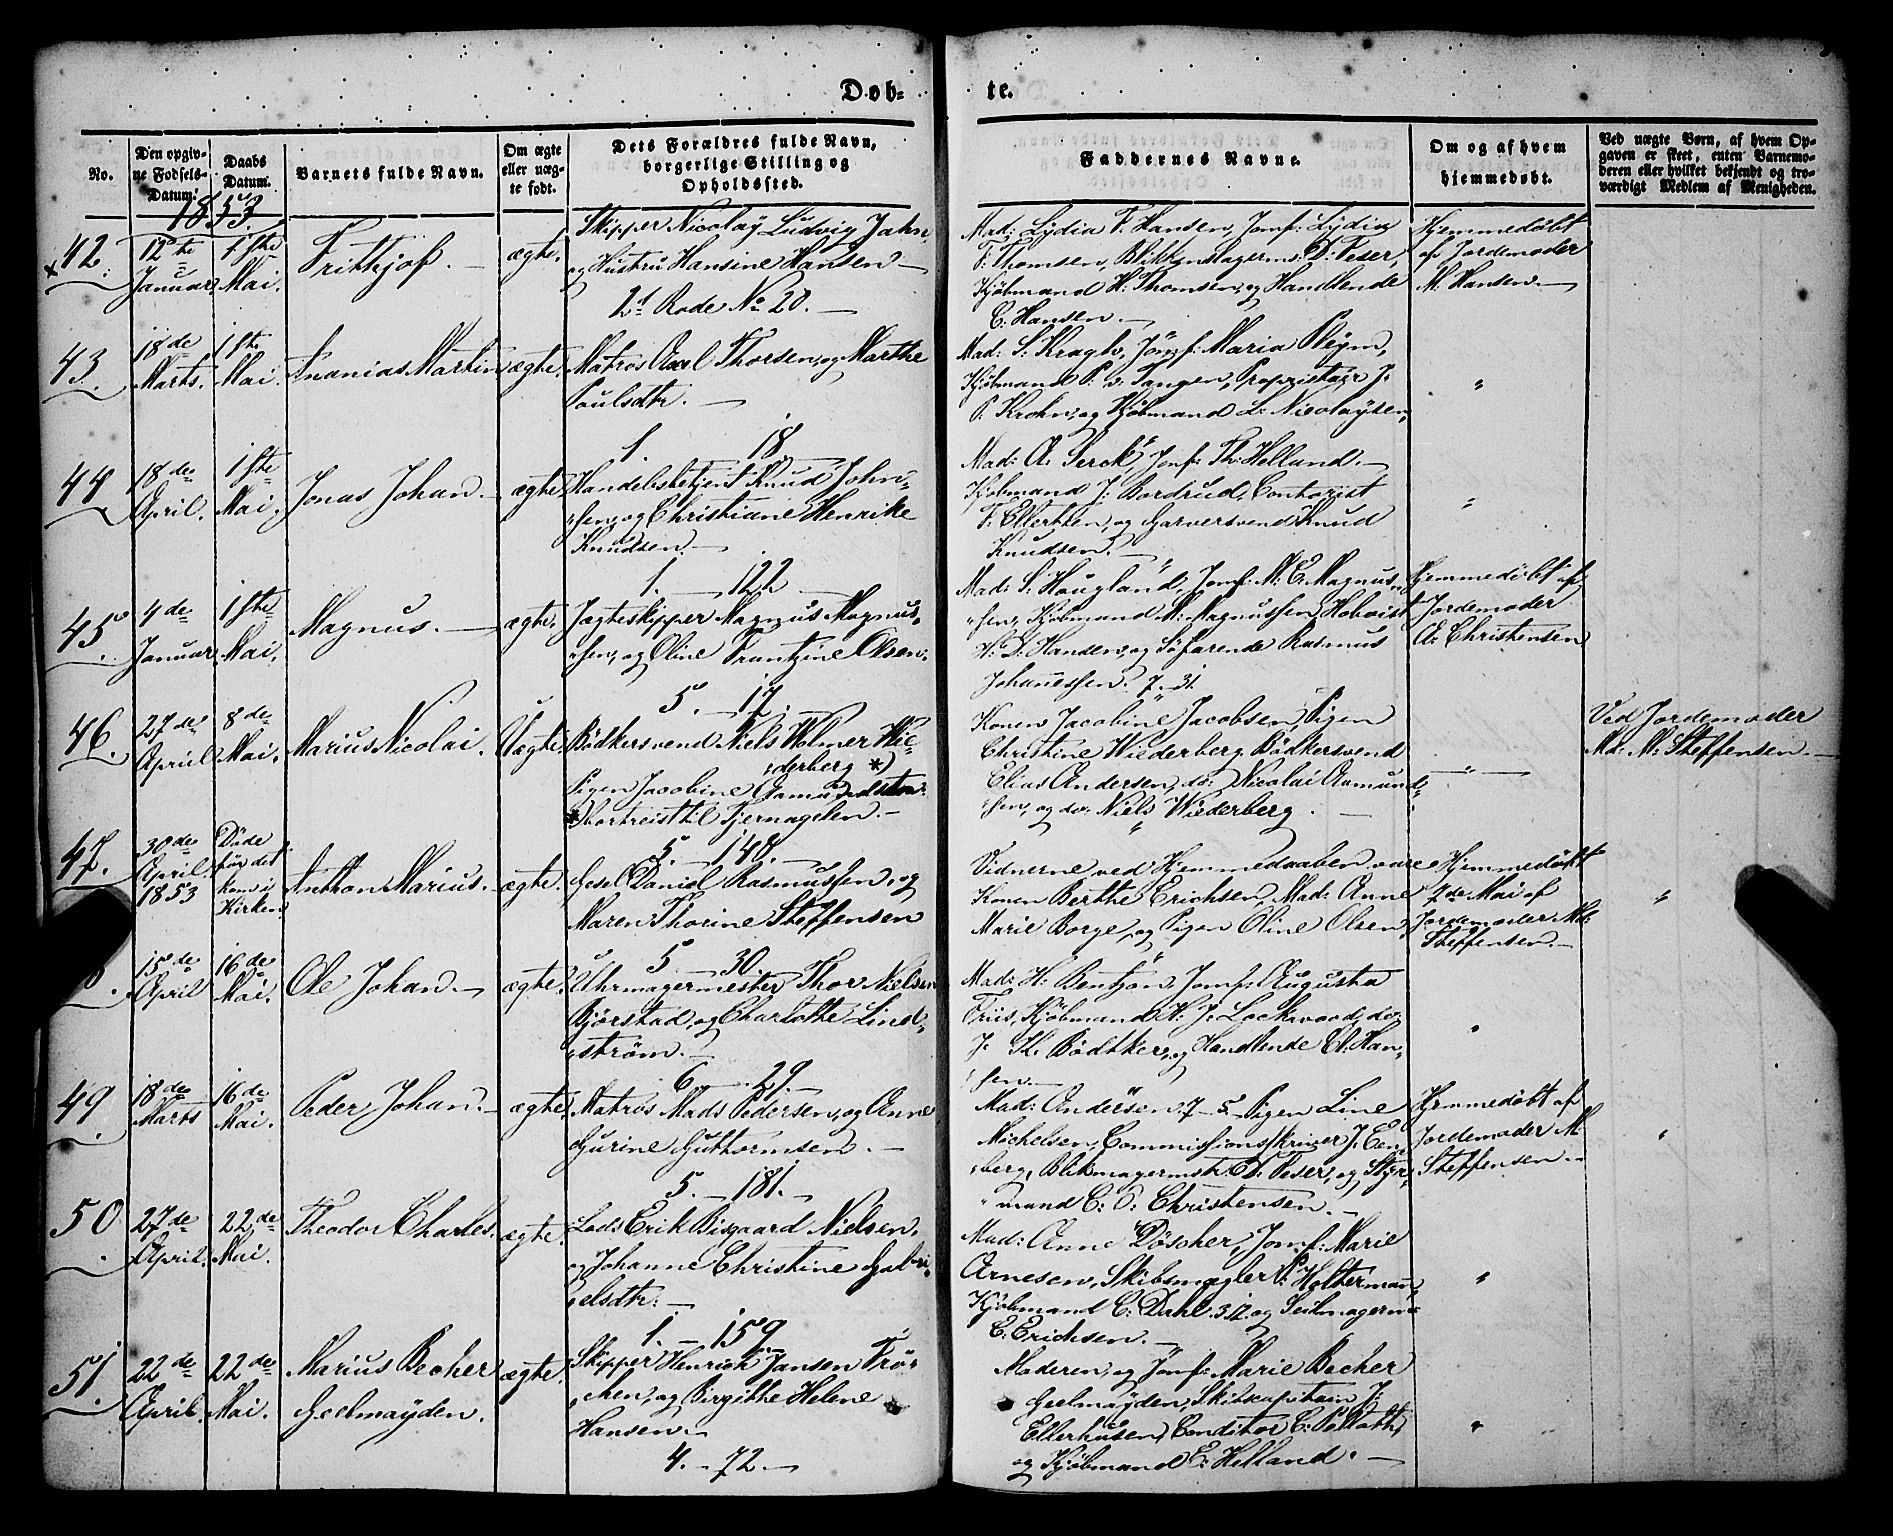 Døb-
te.
No.
Den opgiv-
ne Fødsels-
Datum.
Daabs
Datum.
Barnets fulde Navn.
Om ægte
eller uæg-
te født.
Dets Forældres fulde Navn,
borgerlige Stilling og
Opholdssted.
Faddernes Navne.
Om og af hvem
hjemmedøbt.
Ved uægte Børn, af hvem Op-
gaven er skeet, enten Barnemo-
deren eller hvilket bekjendt og tro-
værdigt Medlem af Menigheden.
1853.
42.
12te
Januar
1ste
Mai.
Frithjof.
ægte.
Skipper Nicolay Ludvig Jahn,
og Hustru Hansine Hansen
2d Rode No 20.
Mad: Lydia F. Hansen, Jomf: Lydia
F. Thomsen, Blikkenslagerm: D. Peser,
Kjøbmand H. Thomsen, og Handlende
C. Hansen.
Hjemmedøbt
af Jordemoder
M. Hansen.
43.
18de
Marts.
1ste
Mai.
Ananias Martin
ægte.
Matros Axel Thorsen, og Marthe
Poulsdtr.
1. 18.
Mad: S. Kragh, Jomf: Maria Pleym,
Kjøbmand P. v. Tangen, Proprietair J.
P. Krohn, og Kjøbmand L. Nicolaysen.
"
44
18de
April.
1ste
Mai.
Jonas Johan.
ægte
Handelsbetjent Knud John-
sen, og Christiane Henrike
Knudsen.
1. 122
Mad: A. Serck, Jomf: Th: Helland.
Kjøbmand J. Bordrud, Contorist
T. Ellertsen, og Garversvend Knud
Knudsen.
"
45
4de
Januar
1ste
Mai.
Magnus.
ægte.
Jagteskipper Magnus Magnus-
sen, og Oline Frantzine Olsen.
5. 17.
Mad: S. Hougland, Jomf: M. E. Magnus-
sen, Kjøbmand M. Magnussen, Hoboist
H. D. Hansen, og Søfarende Rasmus
Johannessen. 7. 31.
Hjemmedøbt af
Jordemoder
A. Christensen
46.
27de
April
8de
Mai.
Marius Nicolai.
Uægte
Bødkersvend Niels Wolmer Wie-
derberg *)
Pigen Jacobine Aamundsdtr:
*) bortreist til Fjernageln.
5. 148.
Konen Jacobine Jacobsen, Pigen
Christine Wiederberg, Bødkersvend
Elias Andersen, do: Nicolai Aamund-
sen, og do: Niels Wiederberg.
"
Ved Jordemoder
Md: M: Steffensen.
47.
30de
April
1853
Døde
før det
kom i
Kirken
Anthon Marius.
ægte.
Gesel Daniel Rasmussen, og
Maren Thorine Steffensen
5. 30.
Vidnerne ved Hjemmedaaben vare
Konen Berthe Erichsen, Mad: Anne
Marie Borge, og Pigen Oline Olsen,
Hjemmedøbt
7de Mai af
Jordemoder Md:
Steffensen.
"
8.
15de
April
16de
Mai.
Ole Johan.
ægte.
Uhrmagermester Thor Nielsen
Bjørstad, og Charlotte Lind-
strøm.
6. 29.
Mad: H. Bentzon, Jomf: Augusta
Friis, Kjøbmand H. J. Lockwood, do:
J. Th. Bødtker, og Handlende Chr. Han-
sen.
"
49
18de
Marts
16de
Mai.
Peder Johan.
ægte.
Matros Mads Pedersen, og Anne
Gurine Guttormsen.
5. 181.
Mad: Andersen 7-5. Pigen Line
Michelsen, Commissionsskriver J. Een-
berg, Blikmagermstr. D. Peser, og Styr-
mand C. O. Christensen.
Hjemmedøbt af
Jordemoder M
Steffensen.
"
50
27de
April.
22de
Mai.
Theodor Charles.
ægte.
Lods Erik Bisgaard Nielsen,
og Johanne Christine Gabri-
elsdtr:
1. 159.
Mad: Anne Døscher, Jomf: Marie
Arnesen, Skibsmægler P. Holtermann,
Kjøbmand C. Dahl. 312. og Seilmagerm
C. Erichsen.
"
51.
22de
April.
22de
Mai.
Marius Becher
Geelmuyden.
ægte.
Skipper Henrich Jansen Frør-
chen, og Birgitte Helene
Hansen.
4. 72.
Moderen, og Jomf: Marie Becher
Geelmuyden, Skibscapitain J.
Ellerhusen, Conditor C. Pettoth,
og Kjøbmand E. Helland.
"